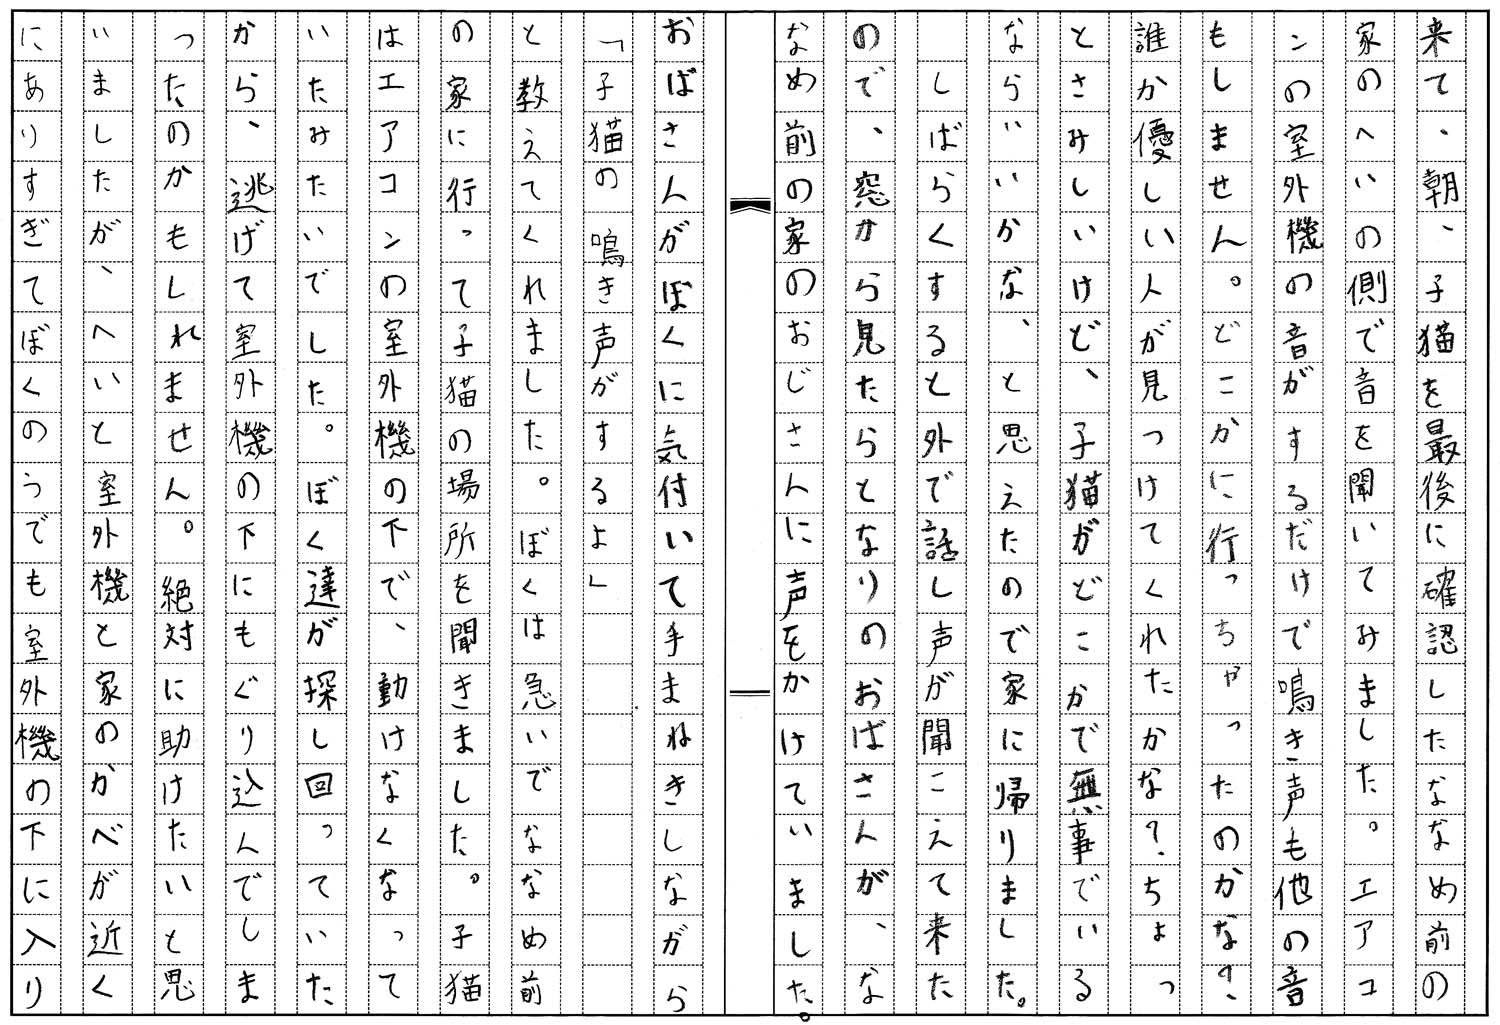 来て、朝、子猫を最後に確認したななめ前の
家のへいの側で音を聞いてみました。エアコ
ンの室外機の音がするだけで鳴き声も他の音
もしません。どこかに行っちゃったのかな?
誰か優しい人が見つけてくれたかな?ちょっ
とさみしいけど、子猫がどこかで無事でいる
ならいいかな、と思えたので家に帰りました。
しばらくすると外で話し声が聞こえて来た
ので、窓から見たらとなりのおばさんが、な
なめ前の家のおじさんに声をかけていました。
おばさんがぼくに気付いて手まねきしながら
「子猫の鳴き声がするよ」
と教えてくれました。ぼくは急いでななめ前
の家に行って子猫の場所を聞きました。子猫
はエアコンの室外機の下で、動けなくなって
いたみたいでした。ぼく達が探し回っていた
から、逃げて室外機の下にもぐり込んでしま
ったのかもしれません。絶対に助けたいと思
いましたが、へいと室外機と家のかべが近く
にありすぎてぼくのうでも室外機の下に入り